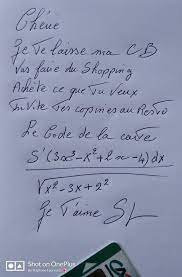 Chérie
Je Te laisse ma CB
Vas faire du Shopping
Achète ce que Tu veux
Invite Tes copines au Resto
Le Code de la carte
S'(3x³-x²+2x-4)dx
√x²-3x+2²
Je T'aime
Shot on OnePlus